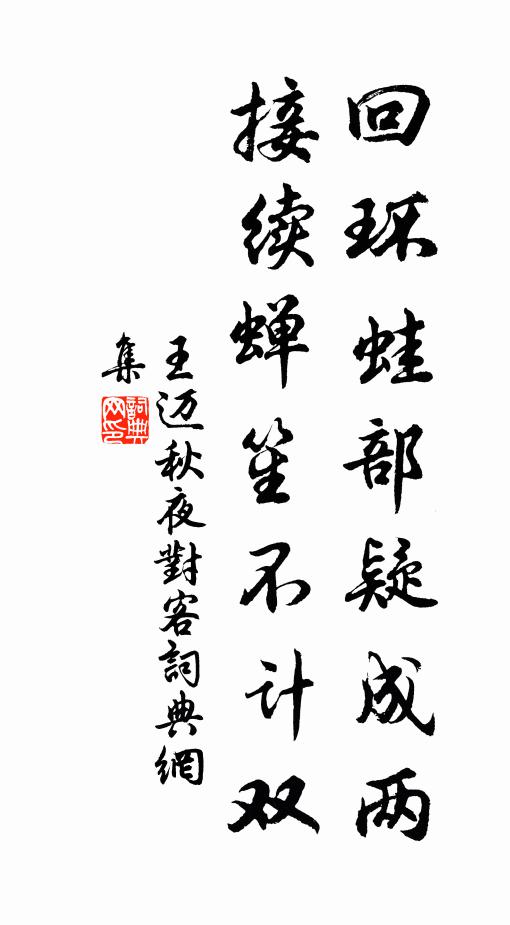 回环蛙部疑成两
接续蝉笙不计双
王迈秋夜對客詞典網
集
詞典网印